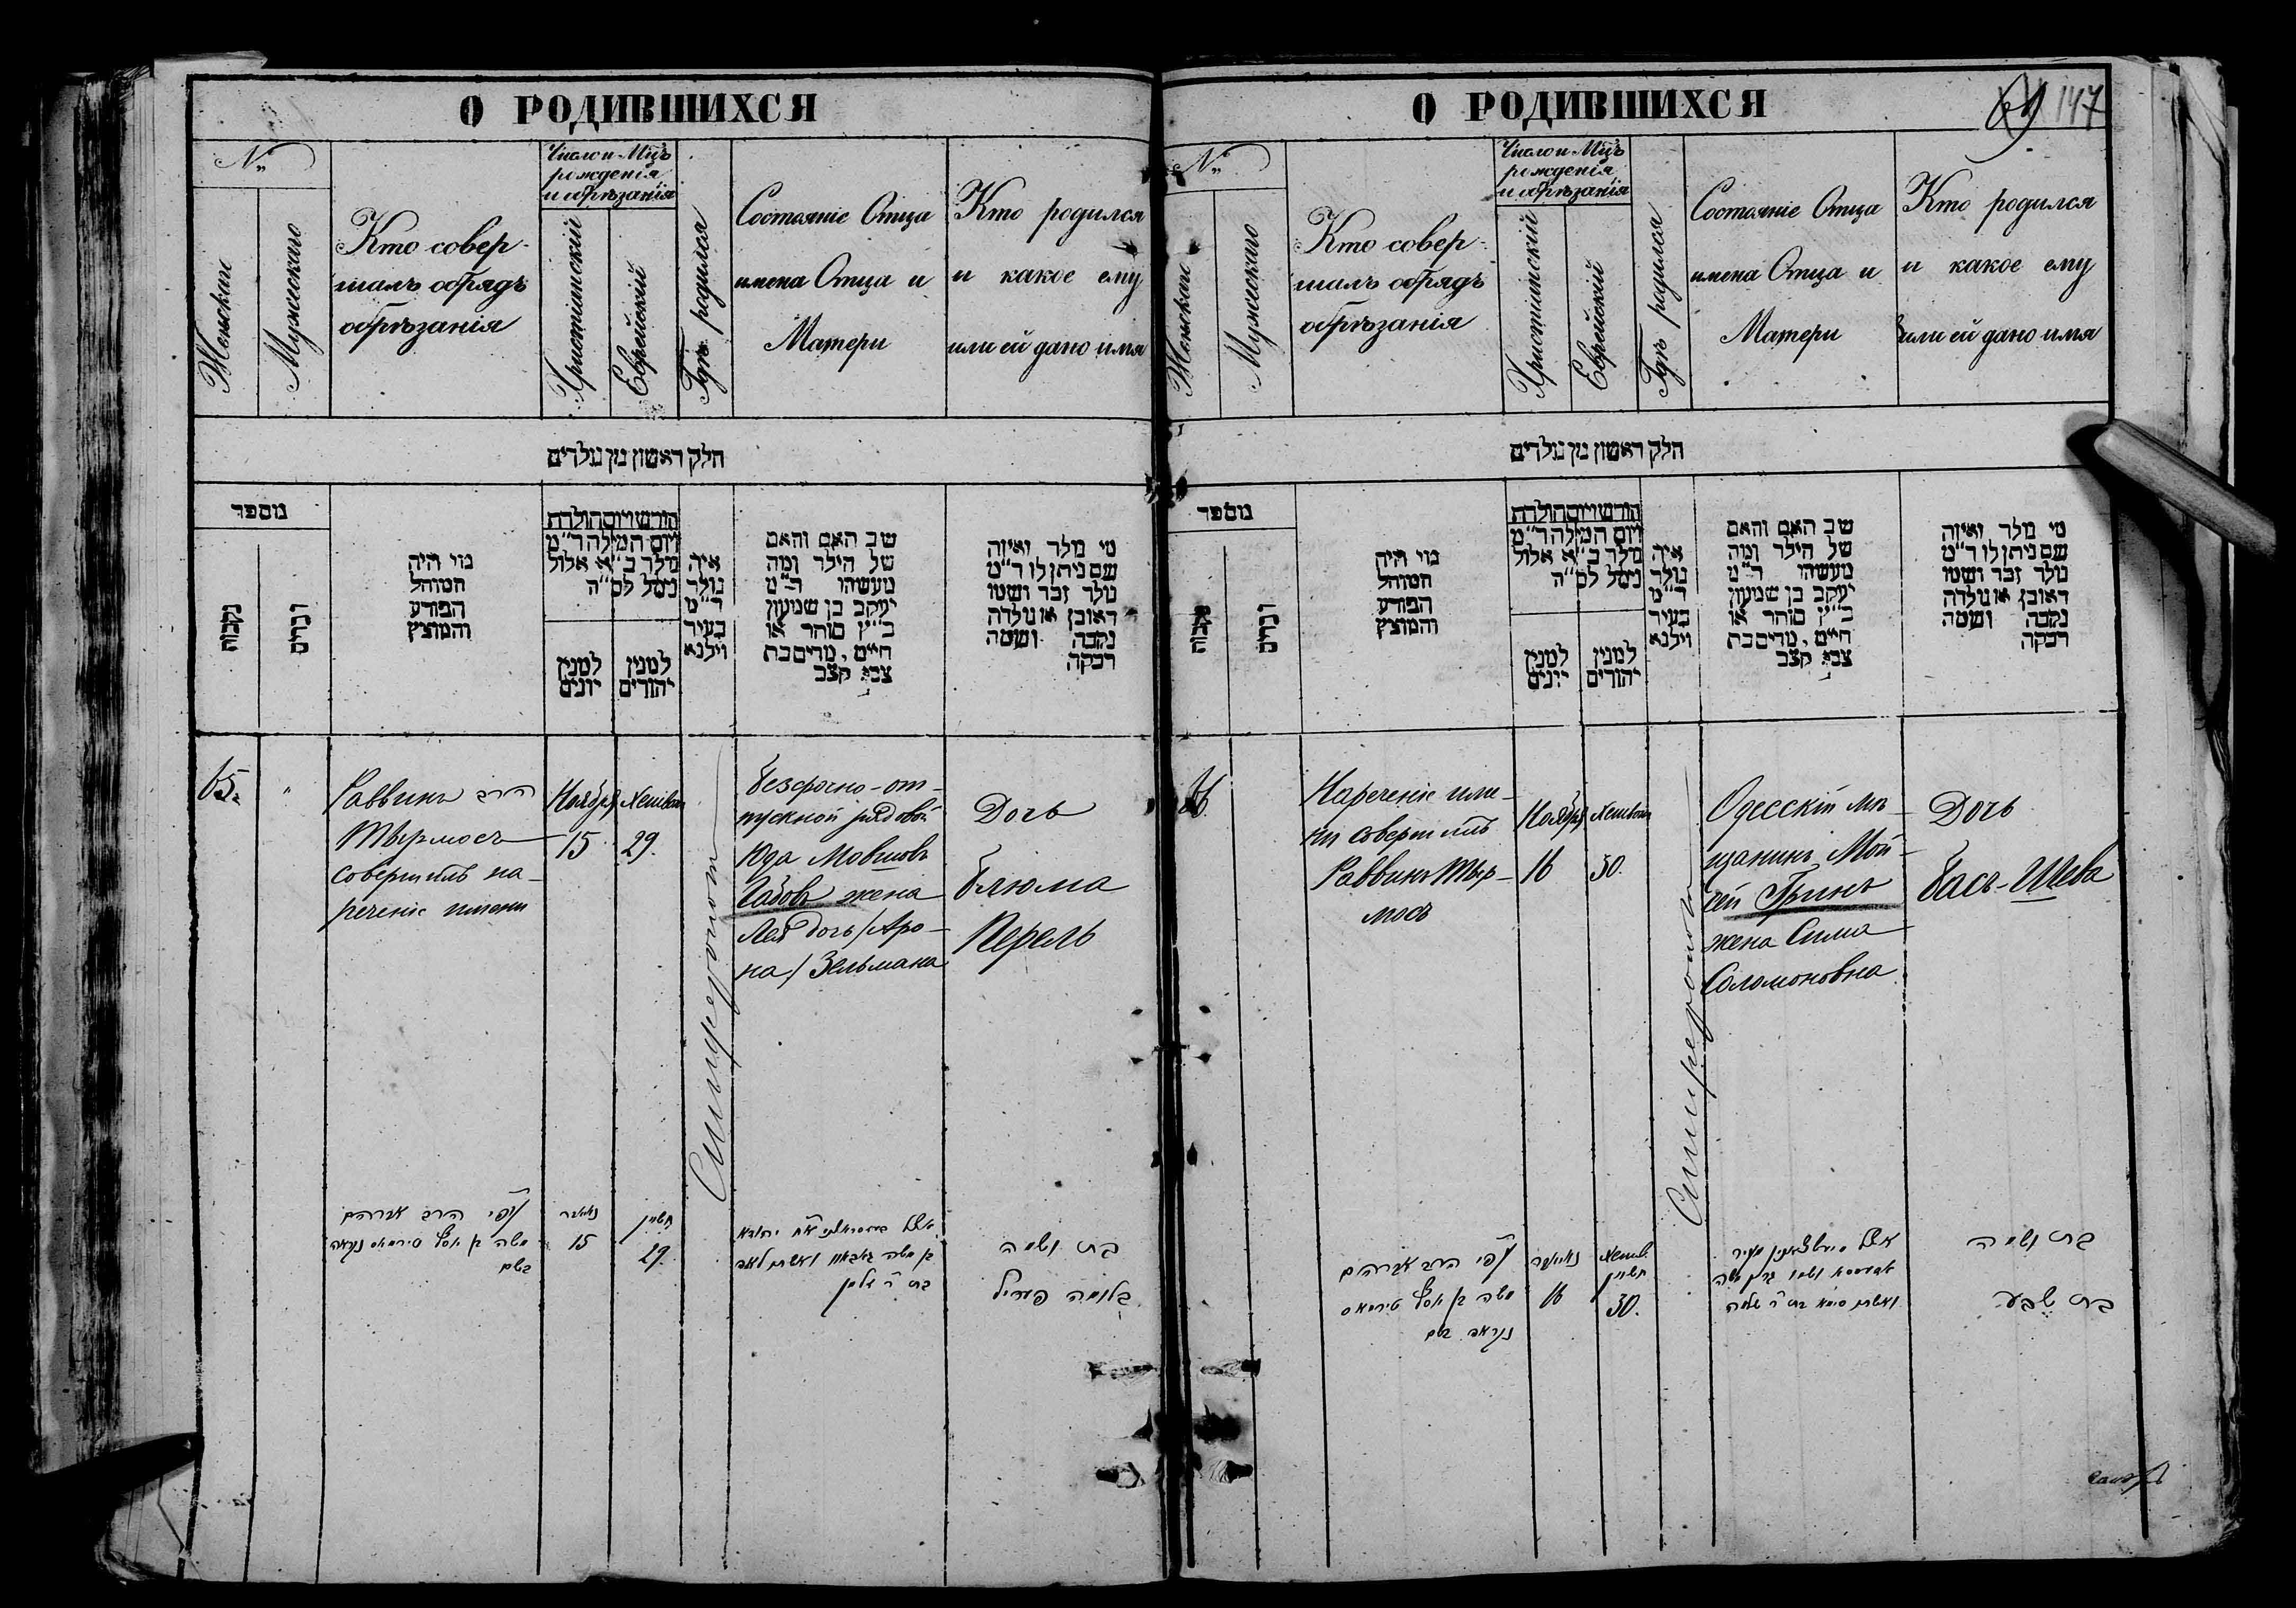 О РОДИВШИХСЯ
№
Женскаго
Мужескаго
Кто совер-
шалъ обрядъ
обрѣзанія
Число и Мцъ
рожденія
и обрѣзанія
Христіанскій
Еврейскій
Гдѣ родился
Состояніе Отца
имена Отца и
Матери
Кто родился
и какое ему
или ей дано имя
חלק ראשון מן נולדים
מספר
נקבות
זכרים
מי היה
המוהל
הפורע
והמוצץ
חודש ויום הולדת
ויום המילה ר״מ
נולד כ״א אלול
נימל לס״ה
למנין
יונים
למנין
יהודים
איה
נולד
ד״מ
בעיר
וילנא
שב האם והאם
של הילד ומה
מעשהו ד״מ
יעקב בן שמעון
כ״ץ סוחר או
חיים, מרים בת
צבי קצב
מי נולד ואיזה
שם ניתן לו ד״מ
נולד זכר ושמו
ראובן או נולדה
נקבה ושמה
רבקה
65.
"
Раввинъ הרב
Тырмосъ
совершилъ на-
реченіе имени
Ноября
15
Хешванъ
29.
Симферополь
безсрочно-от-
пускной рядовой
Юда Мовшовъ
Габовъ жена
Лея дочь /Аро-
на/ Зельмана
Дочь
Блюма
Перель
ע״פי הרב אברהם
משה בן יוסף טירמאס נקראה
בשם
נאיאבר
15
חשוון
29.
בת ושמה
בלומה פעריל
О РОДИВШИХСЯ
69 147
№
Женскаго
Мужескаго
Кто совер-
шалъ обрядъ
обрѣзанія
Число и Мцъ
рожденія
и обрѣзанія
Христіанскій
Еврейскій
Гдѣ родился
Состояніе Отца
имена Отца и
Матери
Кто родился
и какое ему
или ей дано имя
חלק ראשון מן נולדים
מספר
נקבות
זכרים
מי היה
המוהל
הפורע
והמוצץ
חודש ויום הולדת
ויום המילה ר״מ
נולד כ״א אלול
נימל לס״ה
למנין
יונים
למנין
יהודים
איה
נולד
ד״מ
בעיר
וילנא
שב האם והאם
של הילד ומה
מעשהו ד״מ
יעקב בן שמעון
כ״ץ סוחר או
חיים, מרים בת
צבי קצב
מי נולד ואיזה
שם ניתן לו ד״מ
נולד זכר ושמו
ראובן או נולדה
נקבה ושמה
רבקה
66.
Нареченіе име-
ни совершилъ
Раввинъ Тыр-
мосъ
Ноября
16
Хешванъ
30.
Симферополь
Одесскій мѣ-
щанинъ Мой-
сей Гринъ
жена Сима
Соломоновна
Дочь
Басъ-Шева
ע״פי הרב אברהם
משה בן יוסף טירמאס
נקראה בשם
נאיאבר
16
Хешв.
חשוון
30.
בת ושמה
בת שבע